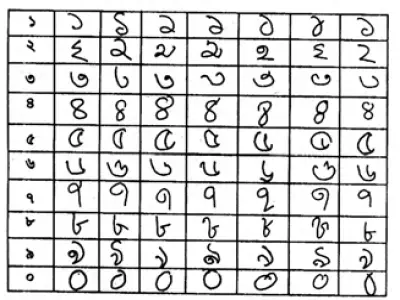 ১ ১ ১ ১ ১ ১ ১ ১
২ ২ ২ ২ ২ ২ ২ ২
৩ ৩ ৩ ৩ ৩ ৩ ৩ ৩
৪ ৪ ৪ ৪ ৪ ৪ ৪ ৪
৫ ৫ ৫ ৫ ৫ ৫ ৫ ৫
৬ ৬ ৬ ৬ ৬ ৬ ৬ ৬
৭ ৭ ৭ ৭ ৭ ৭ ৭ ৭
৮ ৮ ৮ ৮ ৮ ৮ ৮ ৮
৯ ৯ ৯ ৯ ৯ ৯ ৯ ৯
০ ০ ০ ০ ০ ০ ০ ০